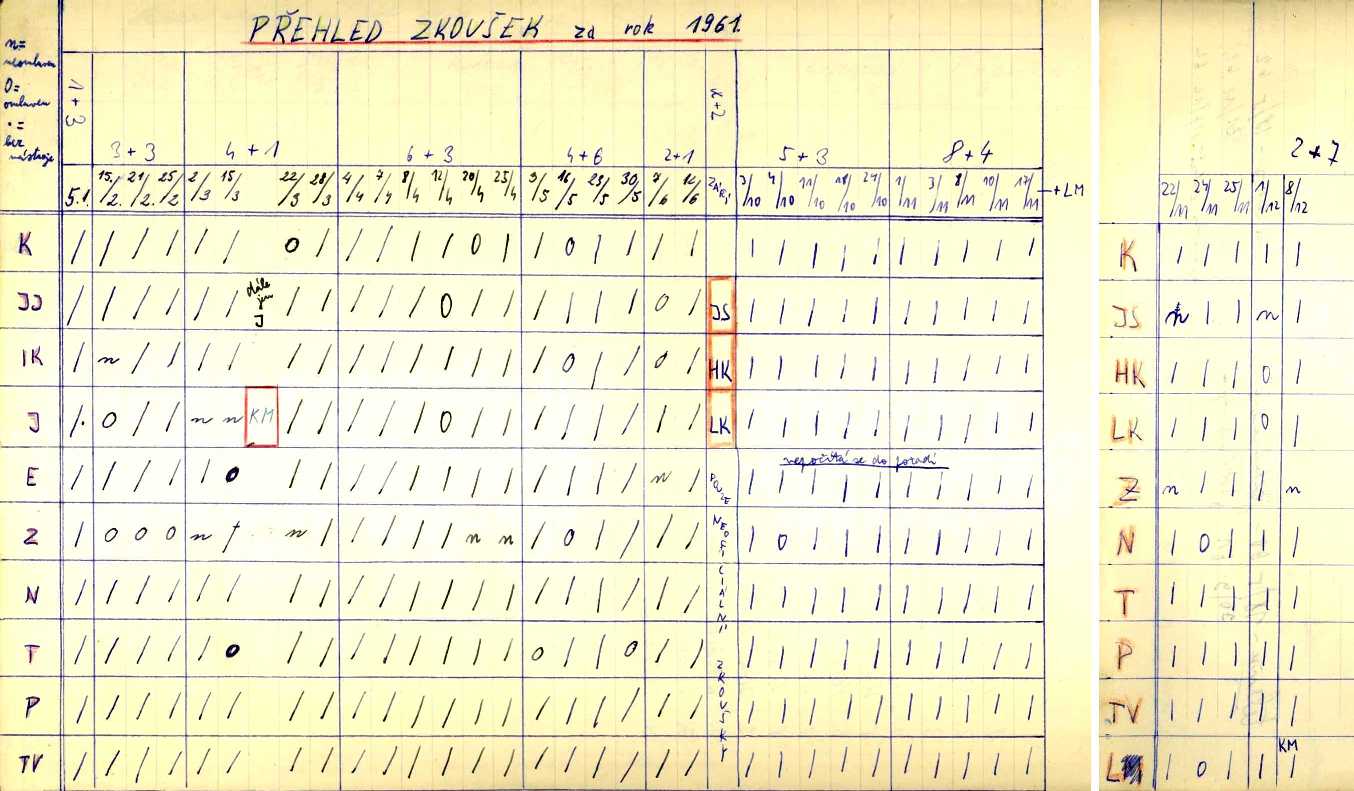 PŘEHLED ZKOUŠEK za rok 1961.
n=
neomluven
0=
omluven
•=
bez
nástroje
1+3 3+3 4+1 6+3 4+6 2+1 5+3 8+4 2+7
5.1. 15./2. 21/2. 25/2 2/3 15/3 22/3 28/3 4/4 7/4 8/4 12/4 20/4 25/4 9/5 16/5 23/5 30/5 7/6 12/6 ZÁŘÍ 3/10 4/10 11/10 18/10 24/10 1/11 3/11 8/11 10/11 17/11 +LM 22/11 24/11 25/11 1/12 8/12
K / / / / / / 0 / / / / / 0 / / 0 / / / / / / / / / / / / / / K / / / / /
JJ / / / / / / dále jen J / / / / / 0 / / / / / / 0 / JS / / / / / / / / / / JS n / / n /
IK / n / / / / / / / / / / / / / 0 / / 0 / HK / / / / / / / / / / HK / / / 0 /
J /. 0 / / n n KM / / / / / 0 / / / / / / / / LK / / / / / / / / / / LK / / / 0 /
nepočítá se do pořadí
E / / / / / 0 / / / / / / / / / / / / n / / / / / / / / / / / Z n / / / n
Z / 0 0 0 n / n / / / / / n n / 0 / / / / / 0 / / / / / / / / N / 0 / / /
N / / / / / / / / / / / / / / / / / / / / / / / / / / / / / / T / / / / /
T / / / / / 0 / / / / / / / / 0 / / 0 / / / / / / / / / / / / P / / / / /
P / / / / / / / / / / / / / / / / / / / / / / / / / / / / / / TV / / / / /
TV / / / / / / / / / / / / / / / / / / / / / / / / / / / / / / L / 0 / / KM /
POUZE NEOFICIÁLNÍ ZKOUŠKY